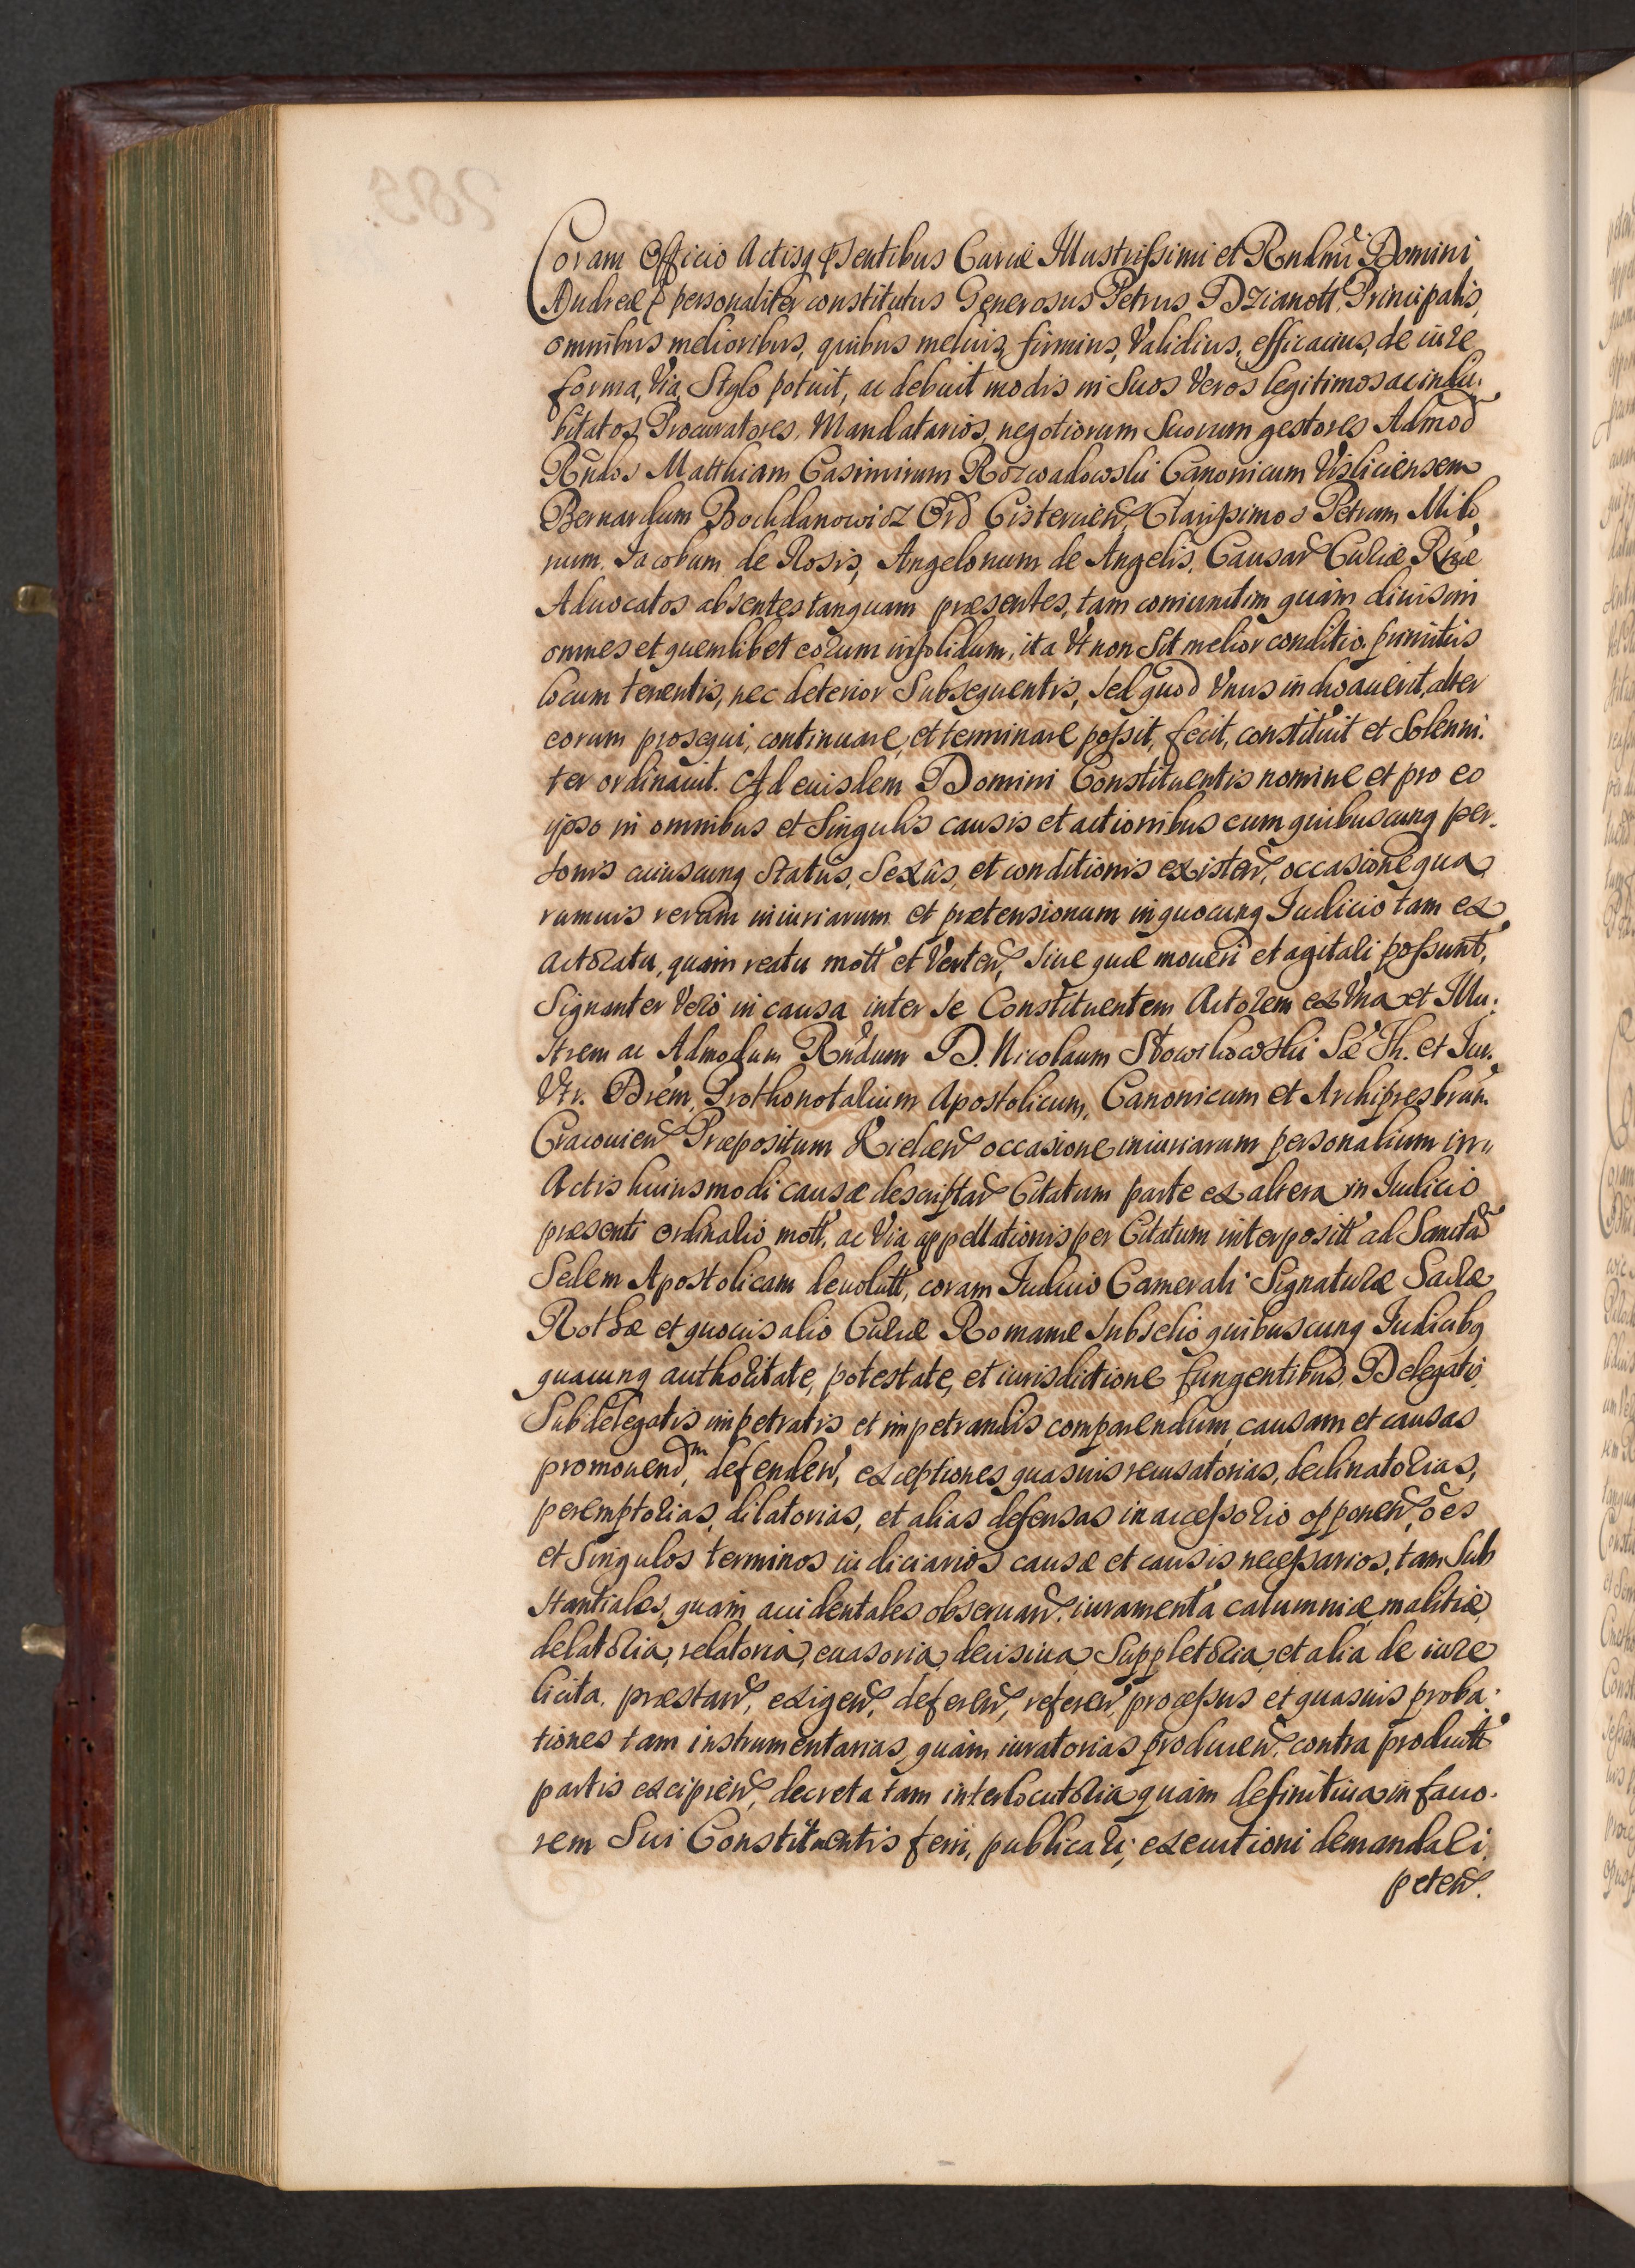 Coram Officio Actisq pñsentibus Curiæ Illustrissimi et Rndmi Domini
Andreæ personaliter constitutus Generosus Petrus Dzianott, Principalis,
omnibus melioribus, quibus melius, firmius, Validius, efficacius, de iure
forma, Via, Stylo potuit, ac debuit modis in Suos Veros legitimos ac indu.
bitatos Procuratores, Mandatarios, negotiorum Suorum gestores Admod
Rñdos Matthiam Casimirum Rozwadowski Canonicum Visliciensem
Bernardum Bochdanowicz Ord Cisterciēn, Clarissimos Petrum Mile
num, Jacobum de Rosis, Angelonum de Angelis, Causar Curiæ Rnæ
Aduocatos absentes tanquam præsentes, tam coniunctim quàm diuisim
omnes et quemlibet eorum insolidum, ita Vt non Sit melior conditio primitùs
locum tenentis, nec deterior Subsequentis, Sed quod Vnus inchoauerit, alter
eorum prosequi, continuare, et terminare possit, fecit, constituit et Solenni.
ter ordinauit. Ad euisdem Domini Constituentis nomine et pro eo
ipso in omnibus et Singulis causis et actionibus cum quibuscunq per.
sonis cuiuscunq Statûs, Sexûs, et conditionis existen, occasione qua
rumuis rerum iniuriarum et prætensionum in quocunq Iudicio tam ex
actoratu, quàm reatu mott et Verten, Siue quæ moueri et agitari possunt,
Signanter Verò in causa inter Se Constituentem Actorem ex Vna et Illu.
Strem ac Admodum Rñdum D. Nicolaum Słowikowski Sæ Th. et Iur.
Vtr. Drēm, Prothonotarium Apostolicum, Canonicum et Archipresbrūm
Cracouien Præpositum Kielcen occasione iniuriarum personalium in
Actis huiusmodi causæ descriptar Citatum parte ex altera in Iudicio
præsenti ordinario mott, ac Via appellationis per Citatum interposit ad Sanctā
Sedem Apostolicam deuolutt, coram Iudicio Camerali Signaturæ Sacræ
Rothæ et quouis alio Curiæ Romanæ Subselio quibuscunq Iudicibq
quacunq authoritate, potestate, et iurisdictione fungentibus, Delegatis,
Subdelegatis impetratis et impetrandis comparendum, causam et causas
promouend, defenden, exceptiones quasuis recusatorias, declinatorias,
peremptorias, dilatorias, et alias defensas in accessorio opponen, ōes
et Singulos terminos iudiciarios causæ et causis necessarios, tam Sub
Stantiales, quàm accidentales obseruan, iuramenta calumniæ, malitiæ,
delatoria, relatoria, euasoria, decisiua, Suppletoria, et alia de iure
licita, præstan, exigen, deferen, referen, processus et quasuis proba.
tiones tam instrumentarias, quàm iuratorias producen, contra productt
partis excipien, decreta tam interlocutoria quàm definitiua in fauo.
rem Sui Constituentis ferri, publicari, executioni demandari,
peten.